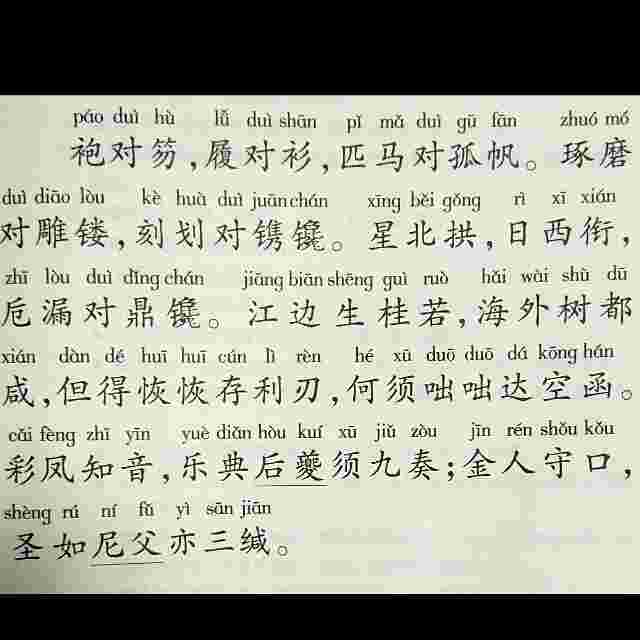 páo duì hù lǚ duì shān pǐ mǎ duì gū fān zhuó mó
袍对笏，履对衫，匹马对孤帆。琢磨
duì diāo lòu kè huà duì juān chán xīng běi gǒng rì xī xián
对雕镂，刻划对镌镵。星北拱，日西衔，
zhī lòu duì dǐng chán jiāng biān shēng guì ruò hǎi wài shù dū
卮漏对鼎镵。江边生桂若，海外树都
xián dàn dé huī huī cún lì rèn hé xū duō duō dá kōng hán
咸，但得恢恢存利刃，何须咄咄达空函。
cǎi fèng zhī yīn yuè diǎn hòu kuí xū jiǔ zòu jīn rén shǒu kǒu
彩凤知音，乐典后夔须九奏；金人守口，
shèng rú ní fǔ yì sān jiān
圣如尼父亦三缄。